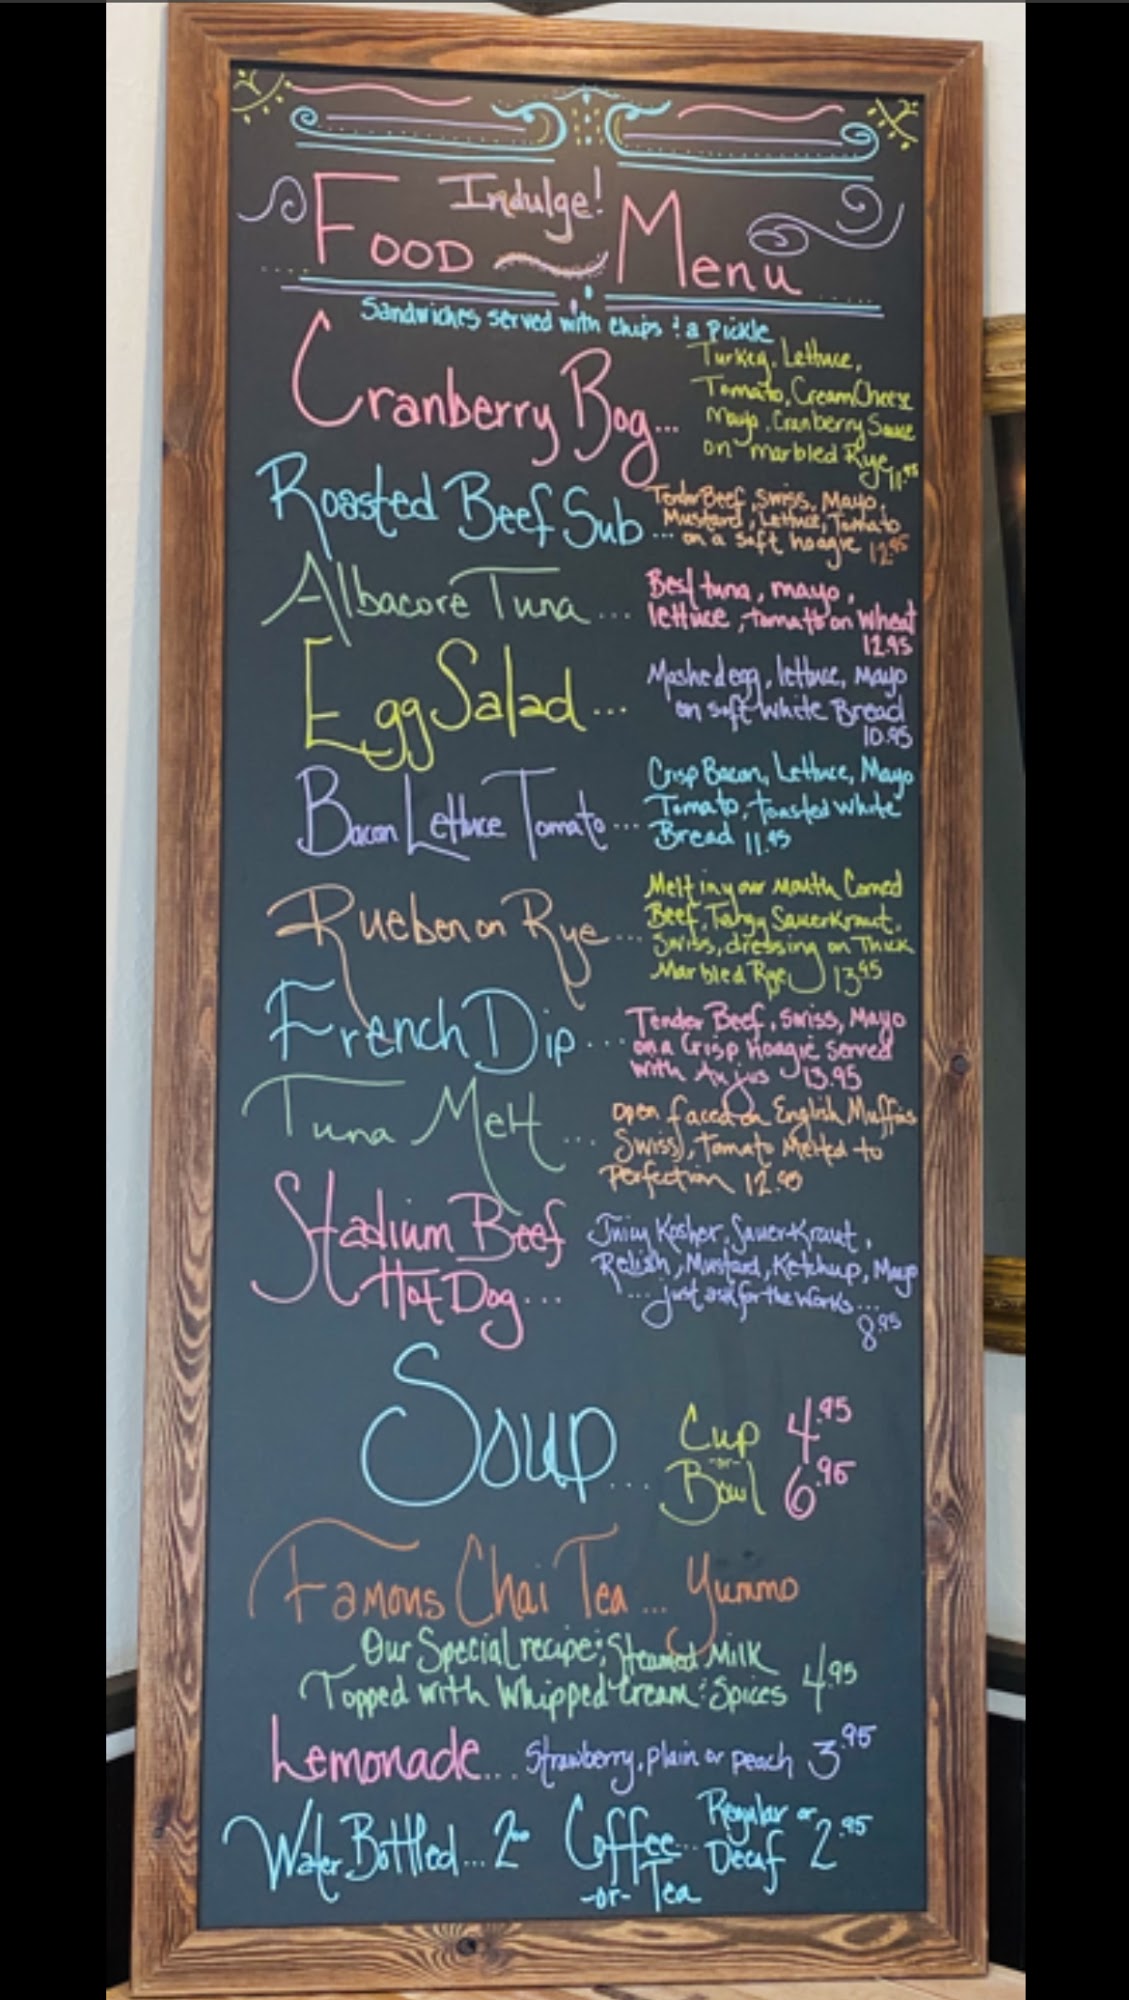 Indulge!
Food Menu
Sandwiches served with chips & a pickle
Cranberry Bog...
Turkey, Lettuce,
Tomato, Cream Cheese
Mayo, Cranberry Sauce
on marbled Rye 11.95
Roasted Beef Sub...
Tender Beef, Swiss, Mayo,
Mustard, Lettuce, Tomato
on a soft hoagie 12.95
Albacore Tuna...
Best tuna, mayo,
lettuce, tomato on Wheat
12.95
Egg Salad...
Mashed egg, lettuce, Mayo
on soft White Bread
10.95
Bacon Lettuce Tomato...
Crisp Bacon, Lettuce, Mayo
Tomato, toasted white
Bread 11.95
Rueben on Rye...
Melt in your mouth Corned
Beef, Tangy Sauerkraut,
Swiss, dressing on Thick
Marbled Rye 13.95
French Dip...
Tender Beef, Swiss, Mayo
on a Crisp hoagie served
with Au jus 13.95
Tuna Melt...
open faced on English Muffins
Swiss, Tomato Melted to
Perfection 12.95
Stadium Beef
Hot Dog...
Juicy Kosher, Sauer-Kraut,
Relish, Mustard, Ketchup, Mayo
... just ask for the works...
8.95
Soup...
Cup 4.95
-or-
Bowl 6.95
Famous Chai Tea... Yummo
Our Special recipe; Steamed Milk
Topped with Whipped Cream & Spices 4.95
Lemonade... Strawberry, plain or peach 3.95
Water Bottled... 2.00
Coffee... Regular or
-or- Tea Decaf 2.95